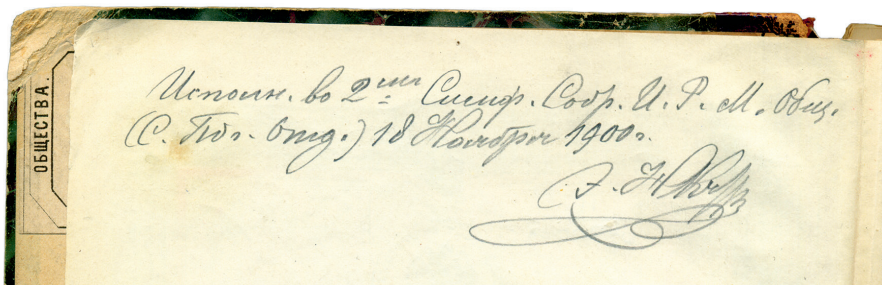 ОБЩЕСТВА.
Исполн. во 2ᵐ Симф. Собр. И. Р. М. Общ.
(С. Пбг. Отд.) 18 Ноября 1900г.